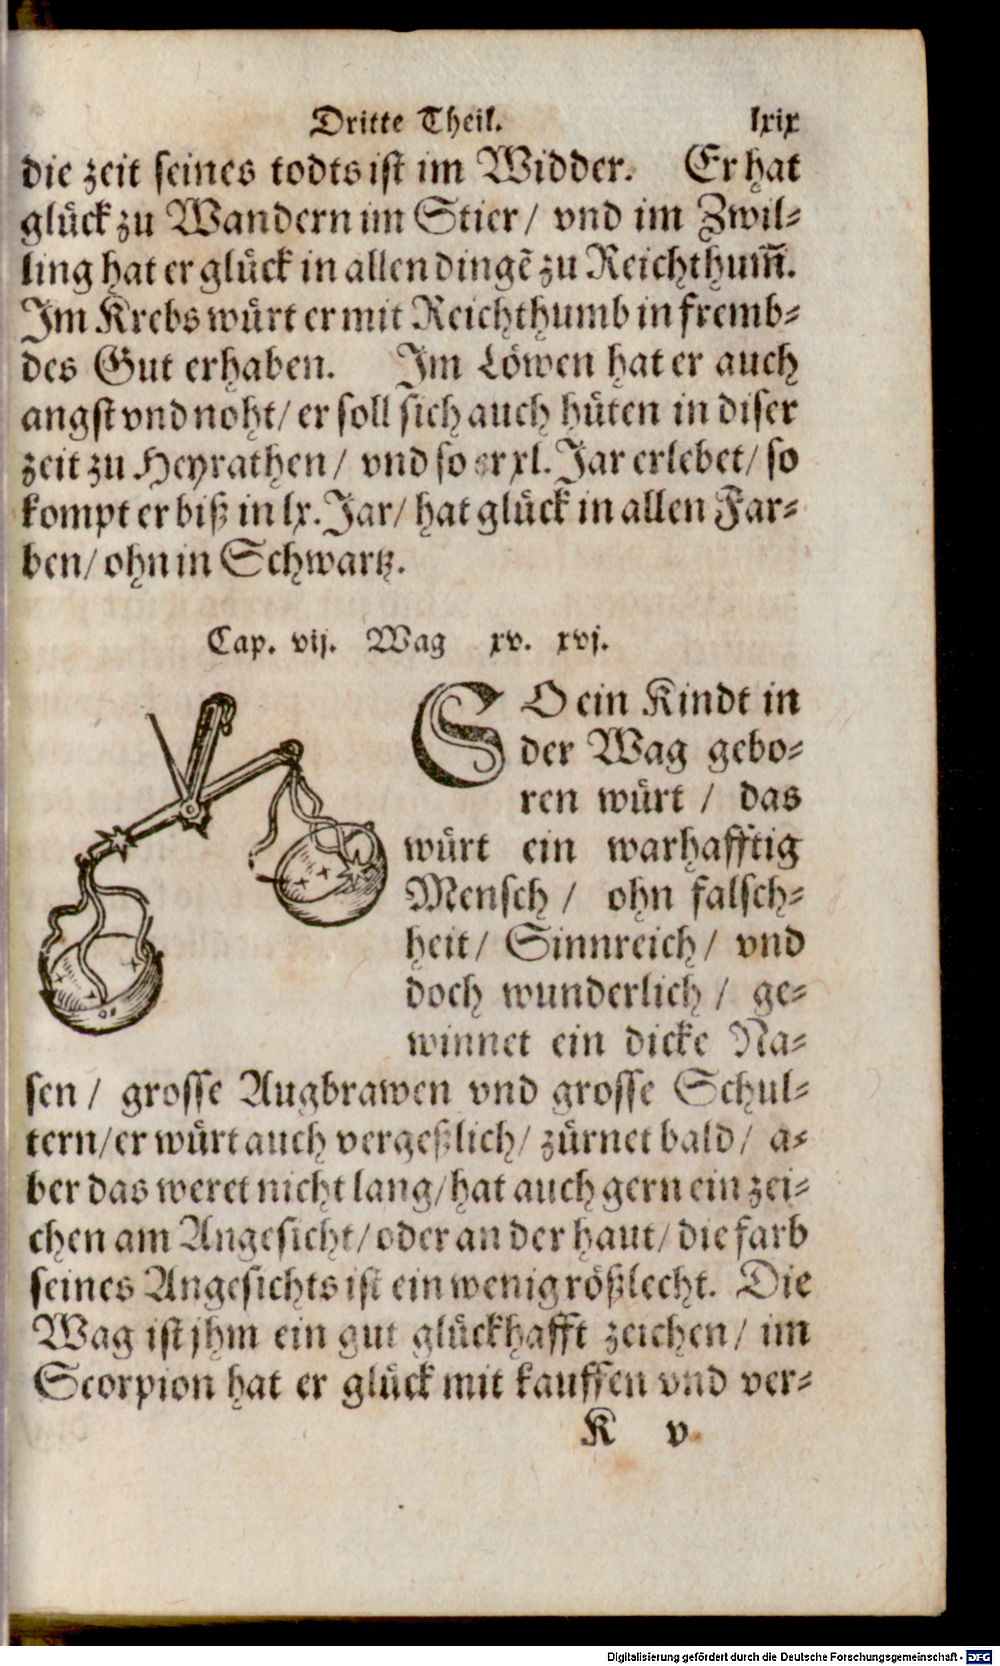 Dritte Theil. lxix
die zeit seines todts ist im Widder. Er hat
glück zu Wandern im Stier / vnd im Zwil-
ling hat er glück in allen dingẽ zu Reichthum̃.
Im Krebs würt er mit Reichthumb in fremb-
des Gut erhaben. Im Löwen hat er auch
angst vnd noht / er soll sich auch hüten in diser
zeit zu Heyrathen / vnd so er xl. Jar erlebet / so
kompt er biß in lx. Jar / hat glück in allen Far-
ben / ohn in Schwartz.
Cap. vij. Wag xv. xvj.
SO ein Kindt in
der Wag gebo-
ren würt / das
würt ein warhafftig
Mensch / ohn falsch-
heit / Sinnreich / vnd
doch wunderlich / ge-
winnet ein dicke Na-
sen / grosse Augbrawen vnd grosse Schul-
tern / er würt auch vergeßlich / zürnet bald / a-
ber das weret nicht lang / hat auch gern ein zei-
chen am Angesicht / oder an der haut / die farb
seines Angesichts ist ein wenig rößlecht. Die
Wag ist jhm ein gut glückhafft zeichen / im
Scorpion hat er glück mit kauffen vnd ver-
K v
Digitalisierung gefördert durch die Deutsche Forschungsgemeinschaft - DFG